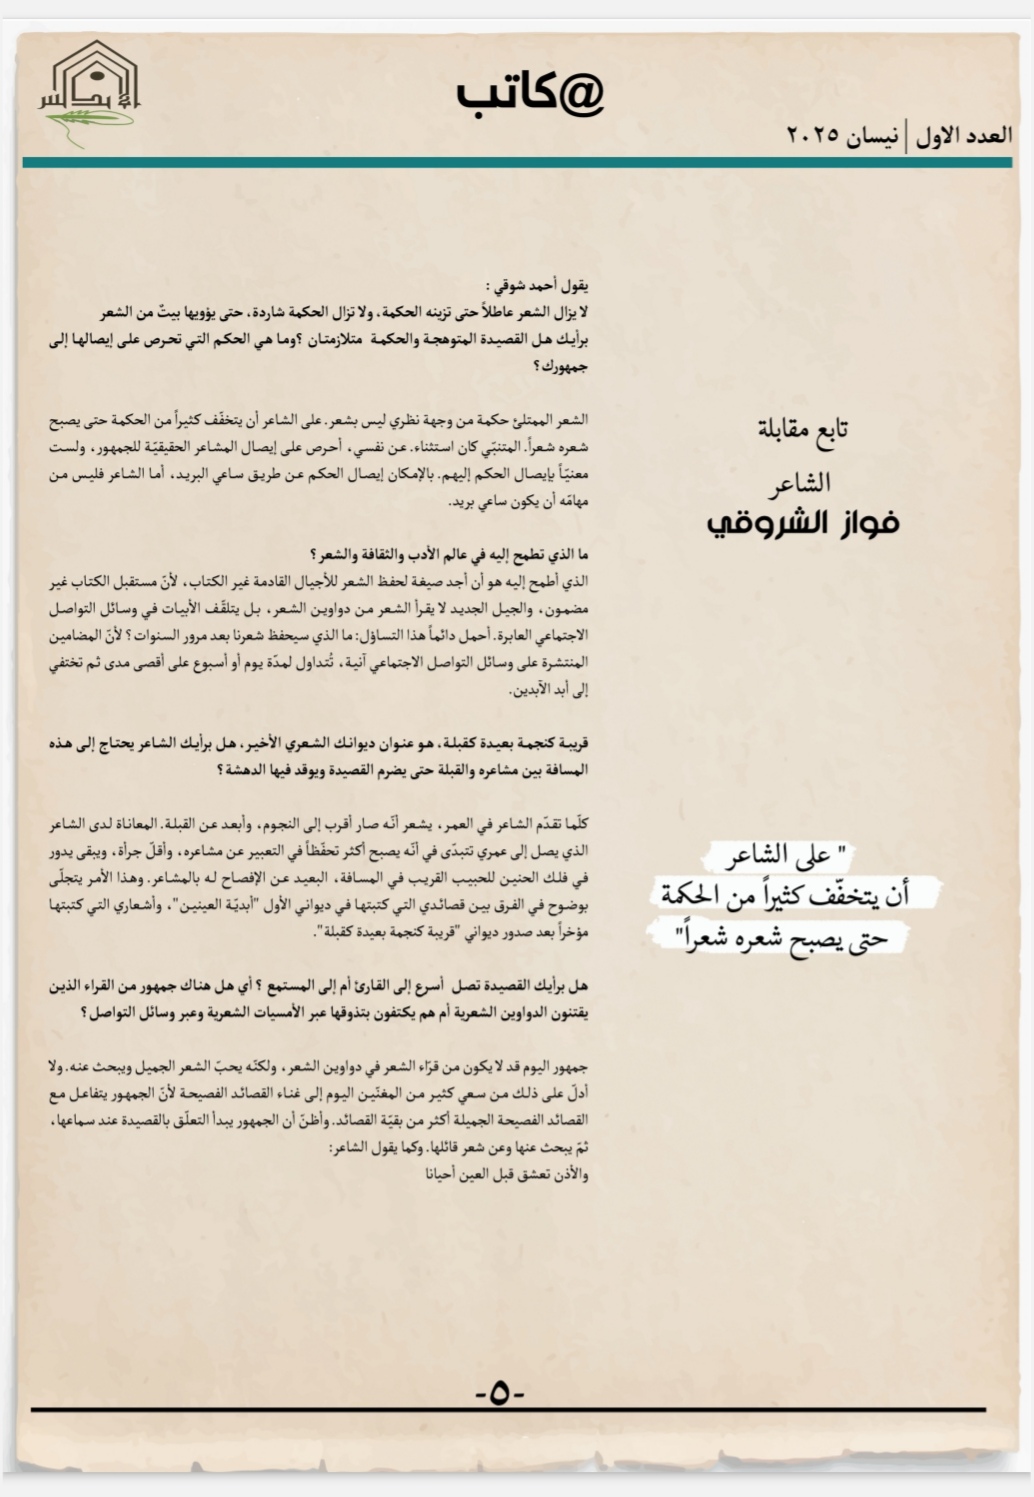 @كاتب
العدد الاول | نيسان ٢٠٢٥
تابع مقابلة
الشاعر
فواز الشروقي
" على الشاعر
أن يتخفّف كثيراً من الحكمة
حتى يصبح شعره شعراً"
يقول أحمد شوقي :
لا يزال الشعر عاطلاً حتى تزينه الحكمة، ولا تزال الحكمة شاردة، حتى يؤويها بيتٌ من الشعر
برأيك هل القصيدة المتوهجة والحكمة متلازمتان ؟وما هي الحكم التي تحرص على إيصالها إلى
جمهورك؟
الشعر الممتلئ حكمة من وجهة نظري ليس بشعر. على الشاعر أن يتخفّف كثيراً من الحكمة حتى يصبح
شعره شعراً. المتنبّي كان استثناء. عن نفسي، أحرص على إيصال المشاعر الحقيقيّة للجمهور، ولست
معنيّاً بإيصال الحكم إليهم. بالإمكان إيصال الحكم عن طريق ساعي البريد، أما الشاعر فليس من
مهامّه أن يكون ساعي بريد.
ما الذي تطمح إليه في عالم الأدب والثقافة والشعر؟
الذي أطمح إليه هو أن أجد صيغة لحفظ الشعر للأجيال القادمة غير الكتاب، لأنّ مستقبل الكتاب غير
مضمون، والجيل الجديد لا يقرأ الشعر من دواوين الشعر، بل يتلقّف الأبيات في وسائل التواصل
الاجتماعي العابرة. أحمل دائماً هذا التساؤل: ما الذي سيحفظ شعرنا بعد مرور السنوات؟ لأنّ المضامين
المنتشرة على وسائل التواصل الاجتماعي آنية، تُتداول لمدّة يوم أو أسبوع على أقصى مدى ثم تختفي
إلى أبد الآبدين.
قريبة كنجمة بعيدة كقبلة، هو عنوان ديوانك الشعري الأخير، هل برأيك الشاعر يحتاج إلى هذه
المسافة بين مشاعره والقبلة حتى يضرم القصيدة ويوقد فيها الدهشة؟
كلّما تقدّم الشاعر في العمر، يشعر أنّه صار أقرب إلى النجوم، وأبعد عن القبلة. المعاناة لدى الشاعر
الذي يصل إلى عمري تتبدّى في أنّه يصبح أكثر تحفّظاً في التعبير عن مشاعره، وأقلّ جرأة، ويبقى يدور
في فلك الحنين للحبيب القريب في المسافة، البعيد عن الإفصاح له بالمشاعر. وهذا الأمر يتجلّى
بوضوح في الفرق بين قصائدي التي كتبتها في ديواني الأول "أبديّة العينين"، وأشعاري التي كتبتها
مؤخراً بعد صدور ديواني "قريبة كنجمة بعيدة كقبلة".
هل برأيك القصيدة تصل أسرع إلى القارئ أم إلى المستمع ؟ أي هل هناك جمهور من القراء الذين
يقتنون الدواوين الشعرية أم هم يكتفون بتذوقها عبر الأمسيات الشعرية وعبر وسائل التواصل؟
جمهور اليوم قد لا يكون من قرّاء الشعر في دواوين الشعر، ولكنّه يحبّ الشعر الجميل ويبحث عنه. ولا
أدلّ على ذلك من سعي كثير من المغنّين اليوم إلى غناء القصائد الفصيحة لأنّ الجمهور يتفاعل مع
القصائد الفصيحة الجميلة أكثر من بقيّة القصائد. وأظنّ أن الجمهور يبدأ التعلّق بالقصيدة عند سماعها،
ثمّ يبحث عنها وعن شعر قائلها. وكما يقول الشاعر:
والأذن تعشق قبل العين أحيانا
-٥-